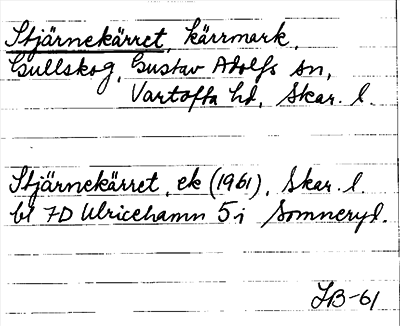 Stjärnekärret, kärrmark,
Gullskog, Gustav Adolfs sn,
Vartofta hd, Skar. l.
Stjärnekärret, ek (1961), Skar. l.
bl 7D Ulricehamn 5i Somneryd.
JB-61